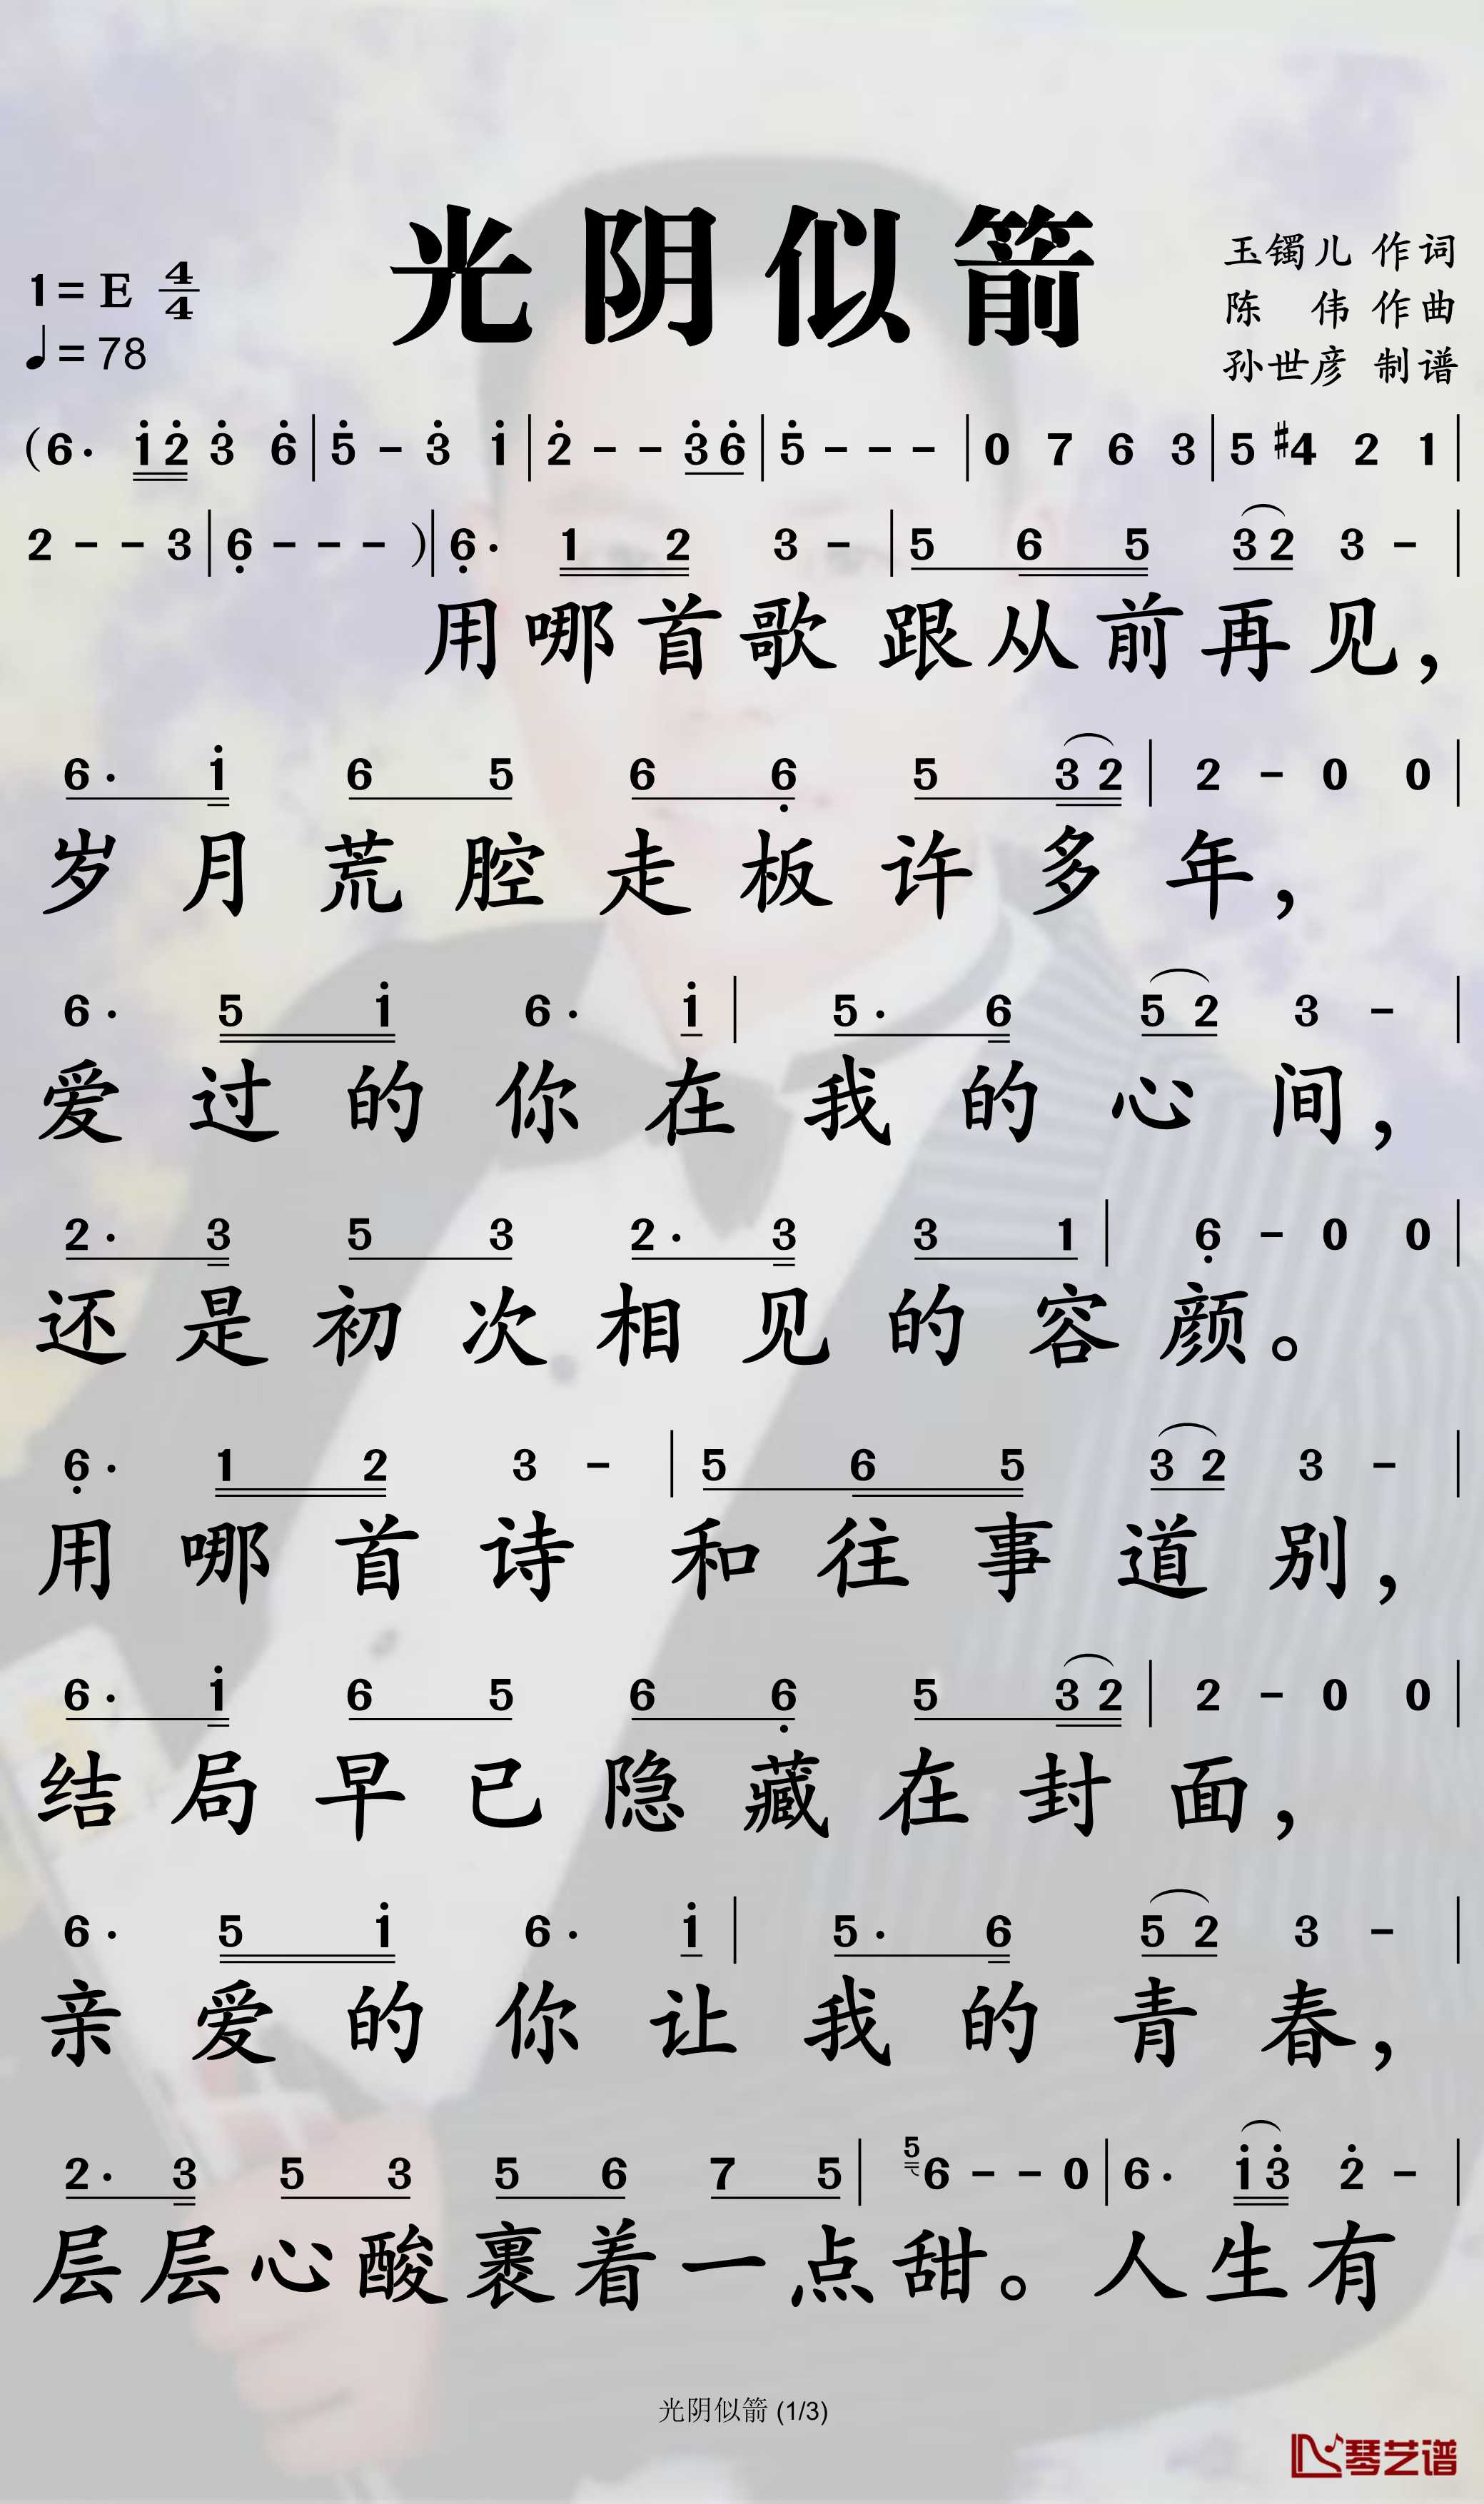 光阴似箭
1=E 4/4
♩=78
玉镯儿 作词
陈 伟 作曲
孙世彦 制谱
(6· i̇ 2̇ 3̇ 6̇ | 5̇ - 3̇ i̇ | 2̇ - - 3̇ 6̇ | 5̇ - - - | 0 7 6 3 | 5 #4 2 1 |
2 - - 3 | 6̣ - - - ) | 6̣· 1 2 3 - | 5 6 5 3 2 3 - |
用哪首歌 跟从前再见，
6· i̇ 6 5 6 6̣ 5 3 2 | 2 - 0 0 |
岁月荒腔走板许多年，
6· 5 i̇ 6· i̇ | 5· 6 5 2 3 - |
爱过的你在我的心间，
2· 3 5 3 2· 3 3 1 | 6̣ - 0 0 |
还是初次相见的容颜。
6̣· 1 2 3 - | 5 6 5 3 2 3 - |
用哪首诗 和往事道别，
6· i̇ 6 5 6 6̣ 5 3 2 | 2 - 0 0 |
结局早已隐藏在封面，
6· 5 i̇ 6· i̇ | 5· 6 5 2 3 - |
亲爱的你让我的青春，
2· 3 5 3 5 6 7 5 | 5 6 - - 0 | 6· i̇ 3̇ 2̇ - |
层层心酸裹着一点甜。人生有
光阴似箭 (1/3)
琴艺谱